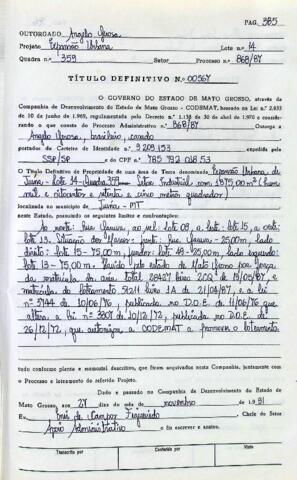 PAG. 385
OUTORGADO Angelo Grosa
Projeto Expansão Urbana Lote n.º 14
Quadra n.º 359 Setor Processo 868/87
TÍTULO DEFINITIVO N.º 00567
O GOVERNO DO ESTADO DE MATO GROSSO, através da
Companhia de Desenvolvimento do Estado de Mato Grosso - CODEMAT, baseado na Lei n.º
de 10 de junho de regulamentada pelo Decreto n.º 1.138 de 30 de abril de 1970 e considerando
o que consta do Processo Administrativo n.º 868/87 Outorga a
Angelo brasileiro, casado
portador da Carteira de Identidade n.º 9 208 153
SSP/SP e do CPF n.º 785 792 018 53
o Título Definitivo de Propriedade de uma área de Terra denominada Expansão Urbana de
Juína - Lote 14 - Quadra 359 Setor Industrial com 1875,00 m² (hum
mil e oitocentos e setenta e cinco metros quadrados)
localizada no município de Juína - MT
neste Estado, possuindo os seguintes limites e confrontações:
ao norte: Rua ao sul: lote 09, a leste: lote 15, a oeste:
lote 13. frente: Rua - 25,00m, lado
direito: lote 15 - 75,00m, fundos: lote 09 - 25,00m, lado esquerdo
lote 13 - 75,00m. do estado de Mato Grosso por força
da matrícula livro 2CQ de 19/05/87, e
matrícula do loteamento 51211 livro 1A de 21/04/87, e a lei
nº 3744 de 10/06/76, publicada no D.O.E. de 11/06/76 que
altera a lei nº 3307 de 10/12/72, publicada no D.O.E. de
26/12/72, que autoriza a CODEMAT a promover o loteamento
tudo conforme planta e memorial descritivo, que foram arquivados nesta Companhia, juntamente com
o Processo e loteamento do referido Projeto.
Dado e passado na Companhia de Desenvolvimento do Estado de
Mato Grosso, aos 27 dias do mês de novembro de 1991
Eu, de Campos Figueiredo Chefe do Setor
Apoio Administrativo o fiz escrever e assino.
Transcrito por Conferido por Visto